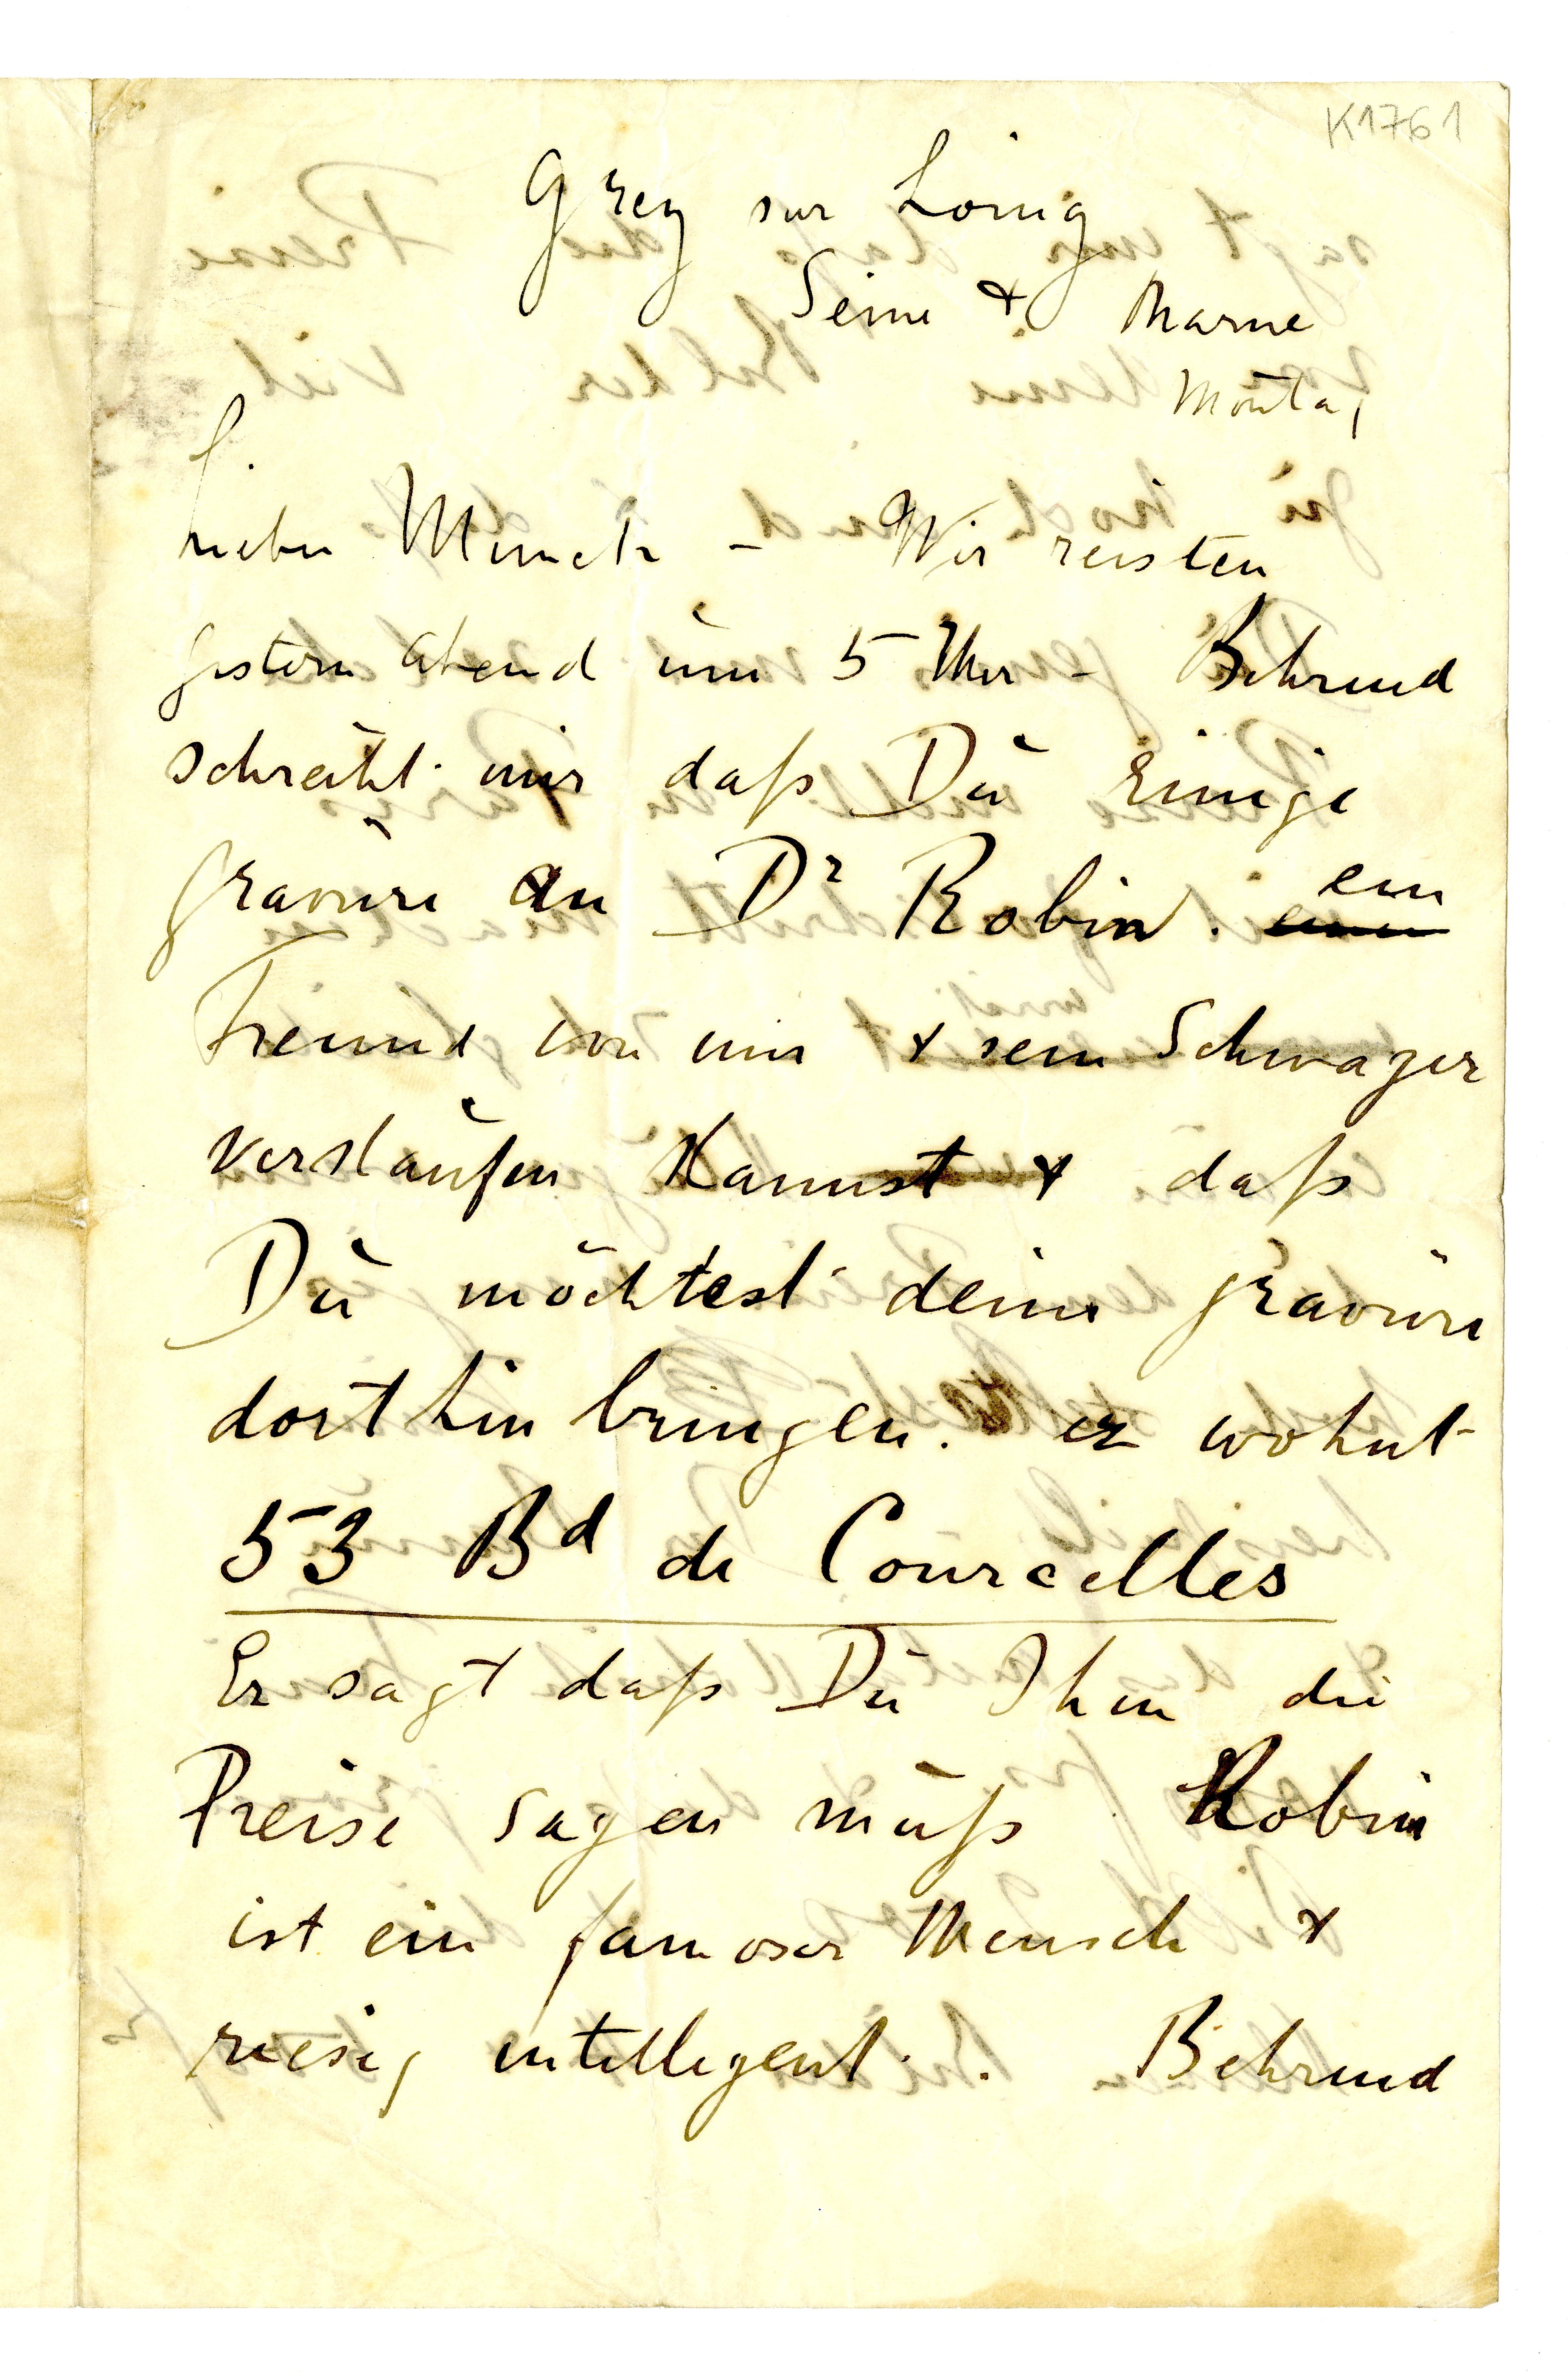 K1761
Grez sur Loing
Seine & Marne
Montag
Lieber Munch - Wir reisten
gestern abend um 5 Uhr - Behrend
schreibt mir daß Du einige
gravure an Dr Robin. ~~einen~~ ein
Freund von mir & sein Schwager
verkaufen kannst & daß
Du möchtest deine gravüre
dorthin bringen. er wohnt
53 Bd de Courcelles
Er sagt daß Du Ihm die
Preise sagen muß. Robin
ist ein famoser Mensch &
riesig intelligent. Behrend